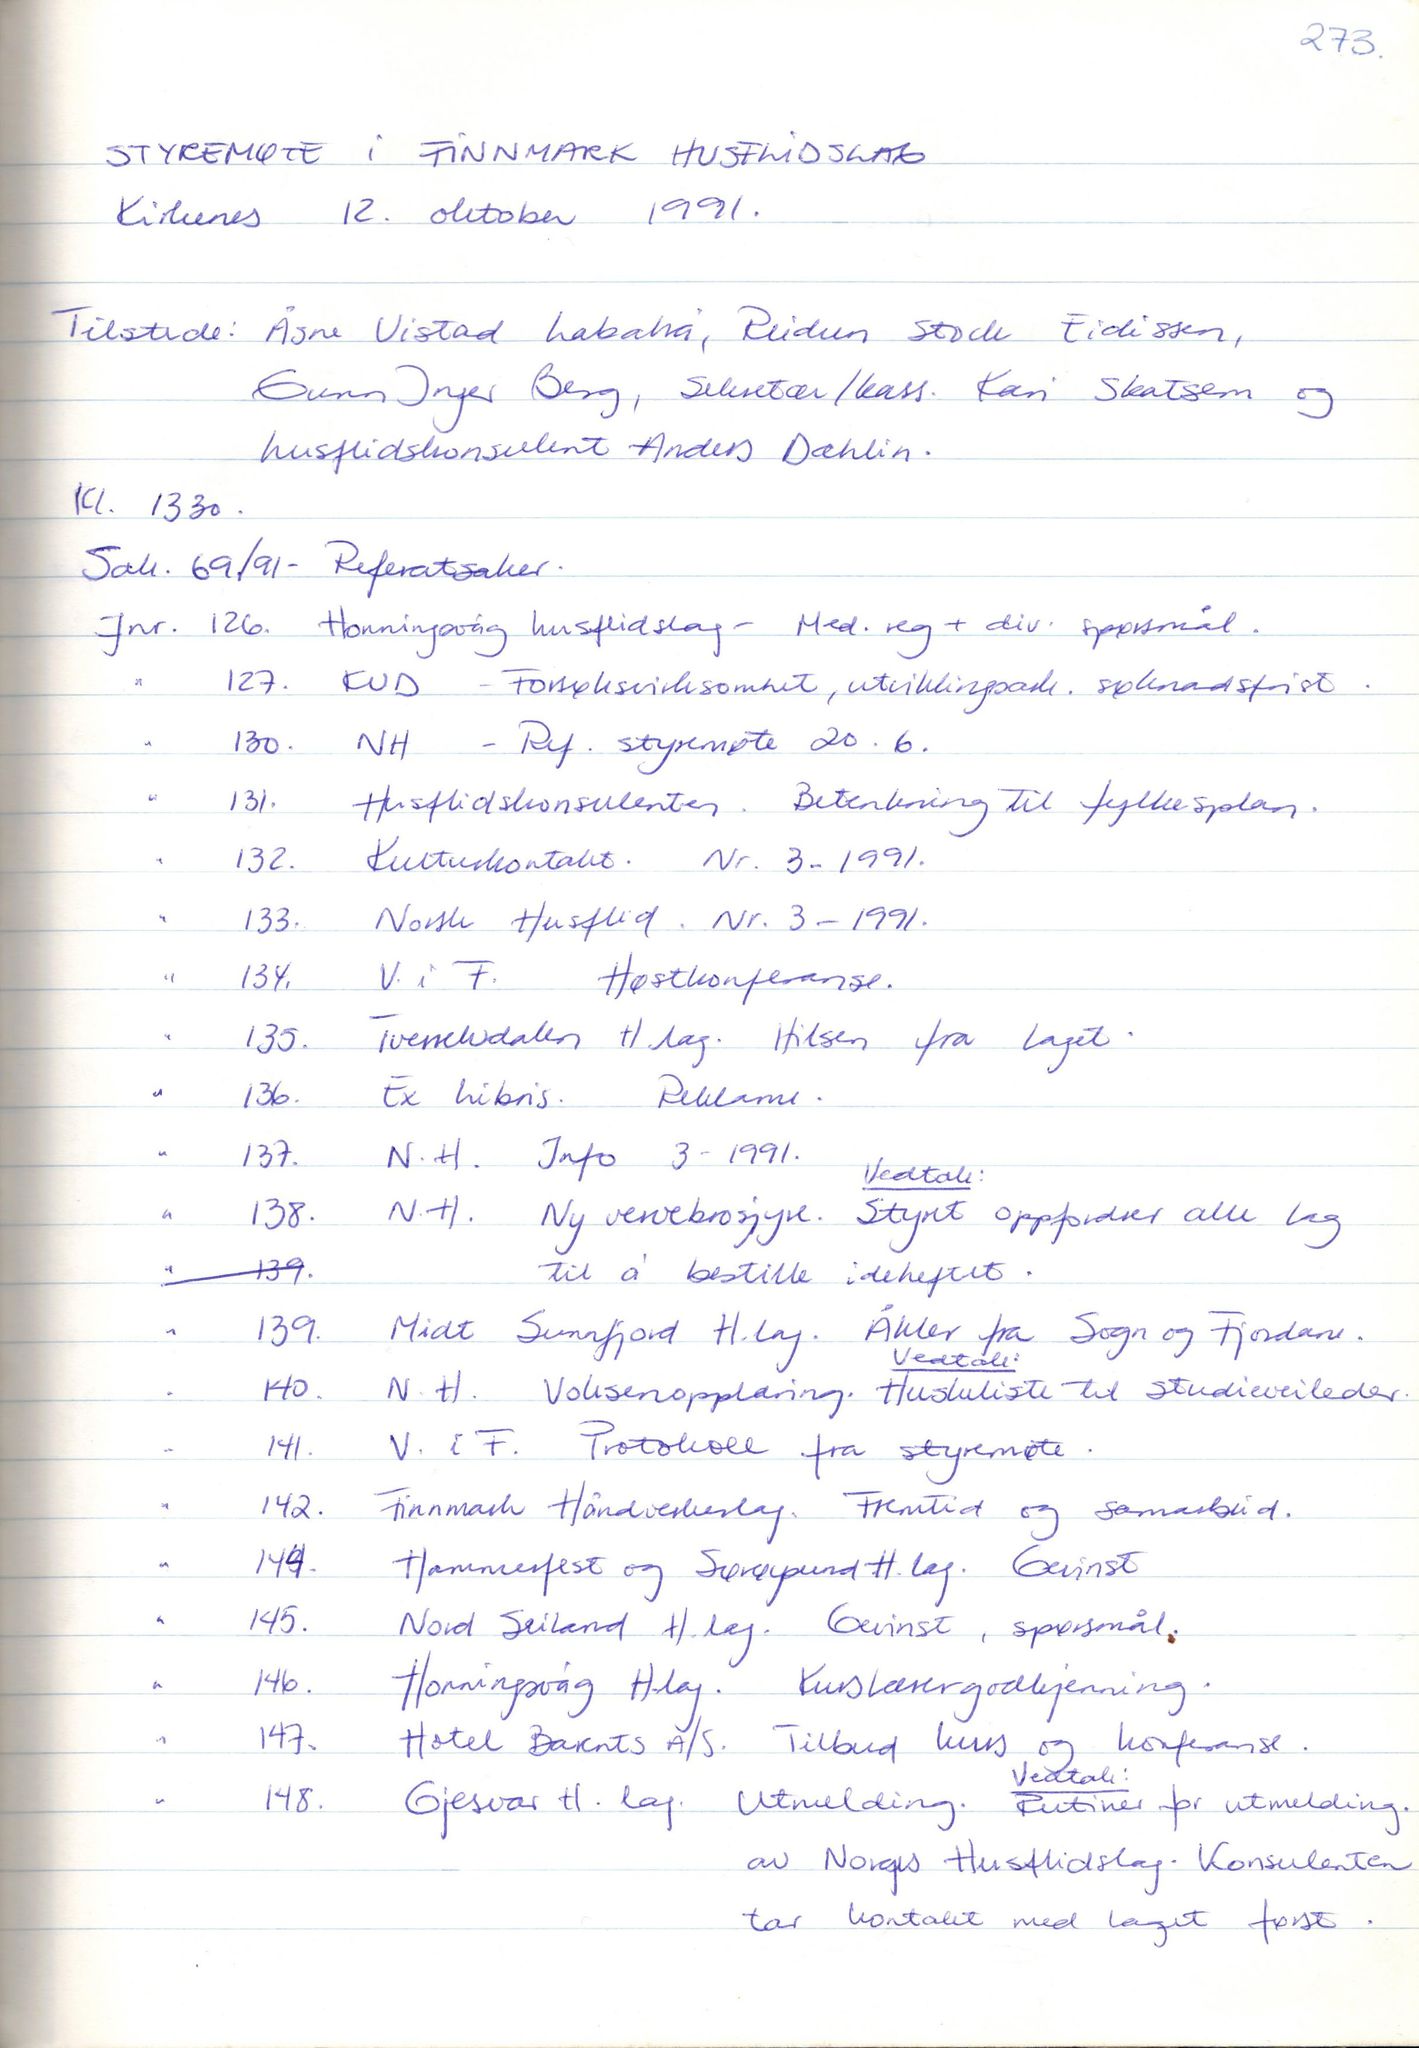 273.
STYREMØTE i FINNMARK HUSFLIDSLAG
Kirkenes 12. oktober 1991.
Tilstede: Åsne Vistad Labahå, Reidun Stock Eidissen,
Gunn Inger Berg, sekretær/kass. Kari Skatsem og
husflidskonsulent Anders Dæhlin.
Kl. 1330.
Sak. 69/91 - Referatsaker.
Jnr. 126. Honningsvåg husflidslag - Med. reg + div. spørsmål.
" 127. KUD - Forsøksvirksomhet, utviklingsarb. søknadsfrist.
" 130. NH - Ref. styremøte 20.6.
" 131. Husflidskonsulenten. Betenkning til fylkesplan.
" 132. Kulturkontakt. Nr. 3-1991.
" 133. Norsk Husflid. Nr. 3-1991.
" 134. V. i F. Høstkonferanse.
" 135. Tverrelvdalen H.lag. Hilsen fra laget.
" 136. Ex Libris. Reklame.
" 137. N.H. Info 3-1991.
Vedtak:
" 138. N.H. Ny vervebrosjyre. Styret oppfordrer alle lag
" 139. til å bestille ideheftet.
" 139. Midt Sunnfjord H.lag. Åkler fra Sogn og Fjordane.
Vedtak:
" 140. N.H. Voksenopplæring. Huskeliste til studieveileder.
" 141. V. i F. Protokoll fra styremøte.
" 142. Finnmark Håndverkerlag. Fremtid og samarbeid.
" 144. Hammerfest og Sørøysund H.lag. Gevinst
" 145. Nord Seiland H.lag. Gevinst, spørsmål.
" 146. Honningsvåg H.lag. Kurslærergodkjenning.
" 147. Hotel Barents A/S. Tilbud kurs og konferanse.
Vedtak:
" 148. Gjesvær H.lag. Utmelding. Rutiner for utmelding.
av Norges Husflidslag. Konsulenten
tar kontakt med laget først.